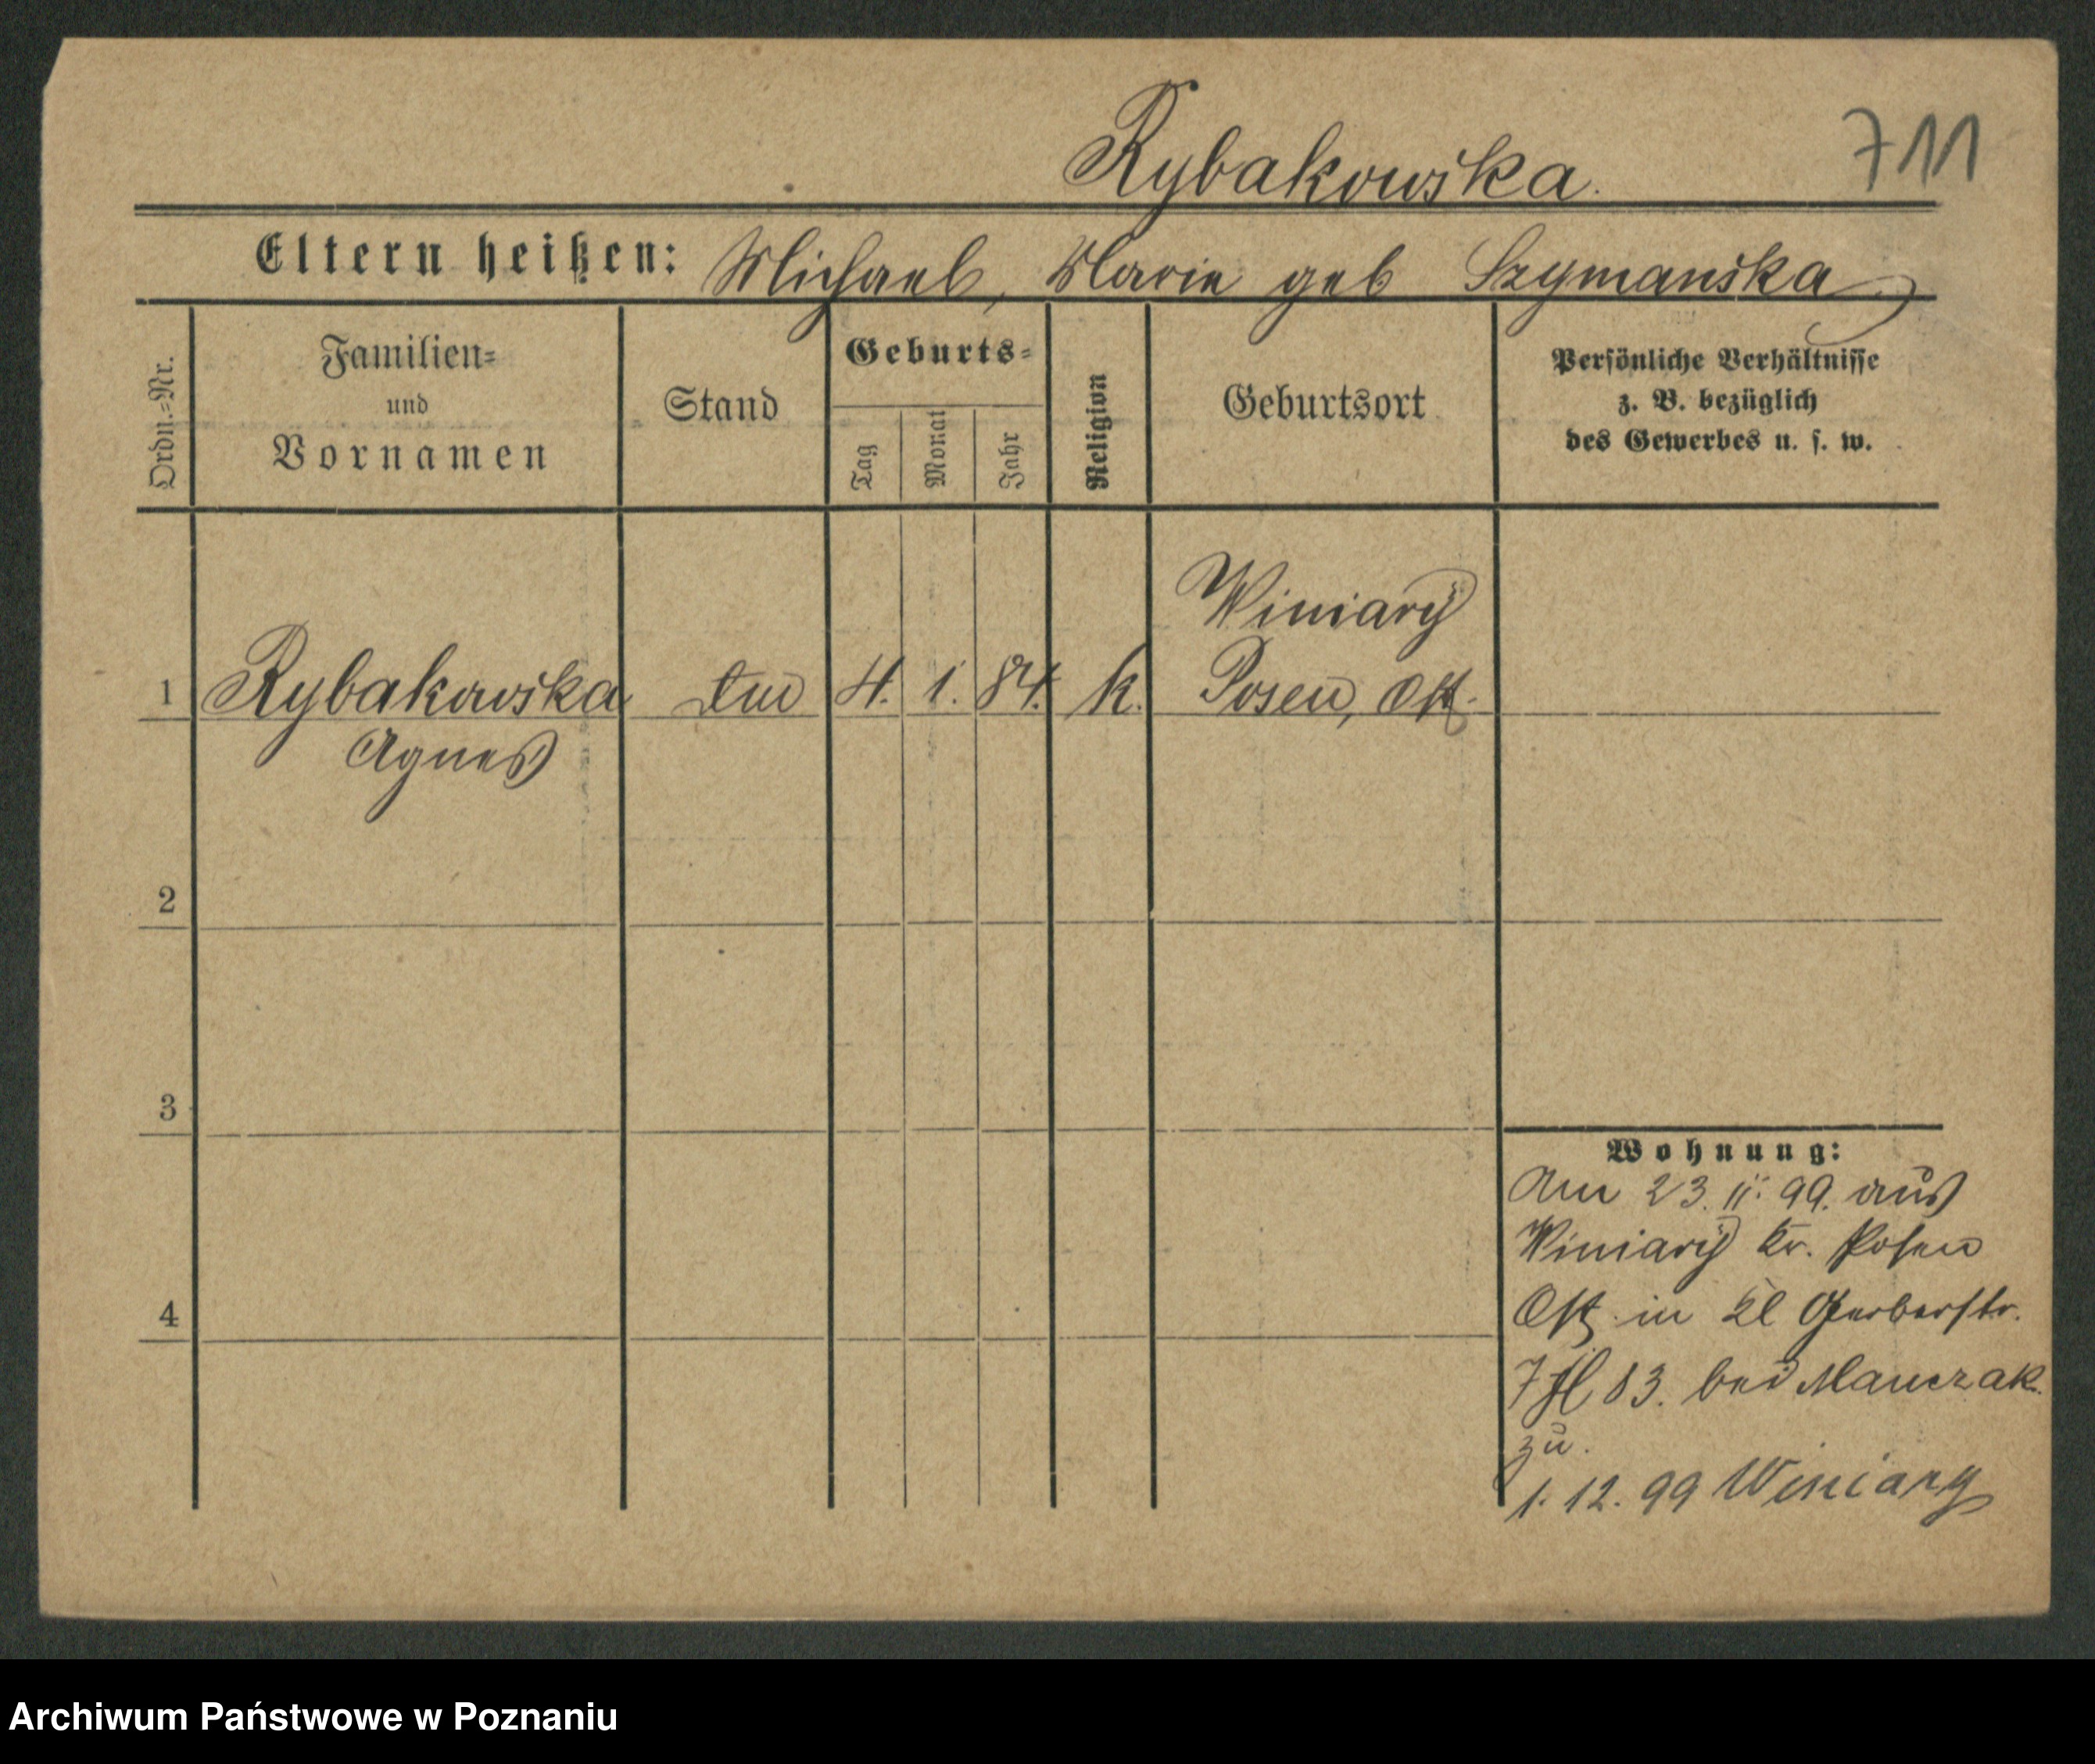 Rybakowska.
711
Eltern heißen: Michael, Marie geb Szymanska
Ordn.=Nr.
Familien=
und
Vornamen
Stand
Geburts=
Tag
Monat
Jahr
Religion
Geburtsort
Persönliche Verhältnisse
z. B. bezüglich
des Gewerbes u. s. w.
Winiary
1 Rybakowska 4. 1. 84. k. Posen, Ost.
Agnes
2
3
4
Wohnung:
Am 23. 11. 99. aus
Winiary Kr. Posen
Ost in Kl Gerberstr.
7 83. bei Manczak.
zu.
1. 12. 99 Winiary
Archiwum Państwowe w Poznaniu